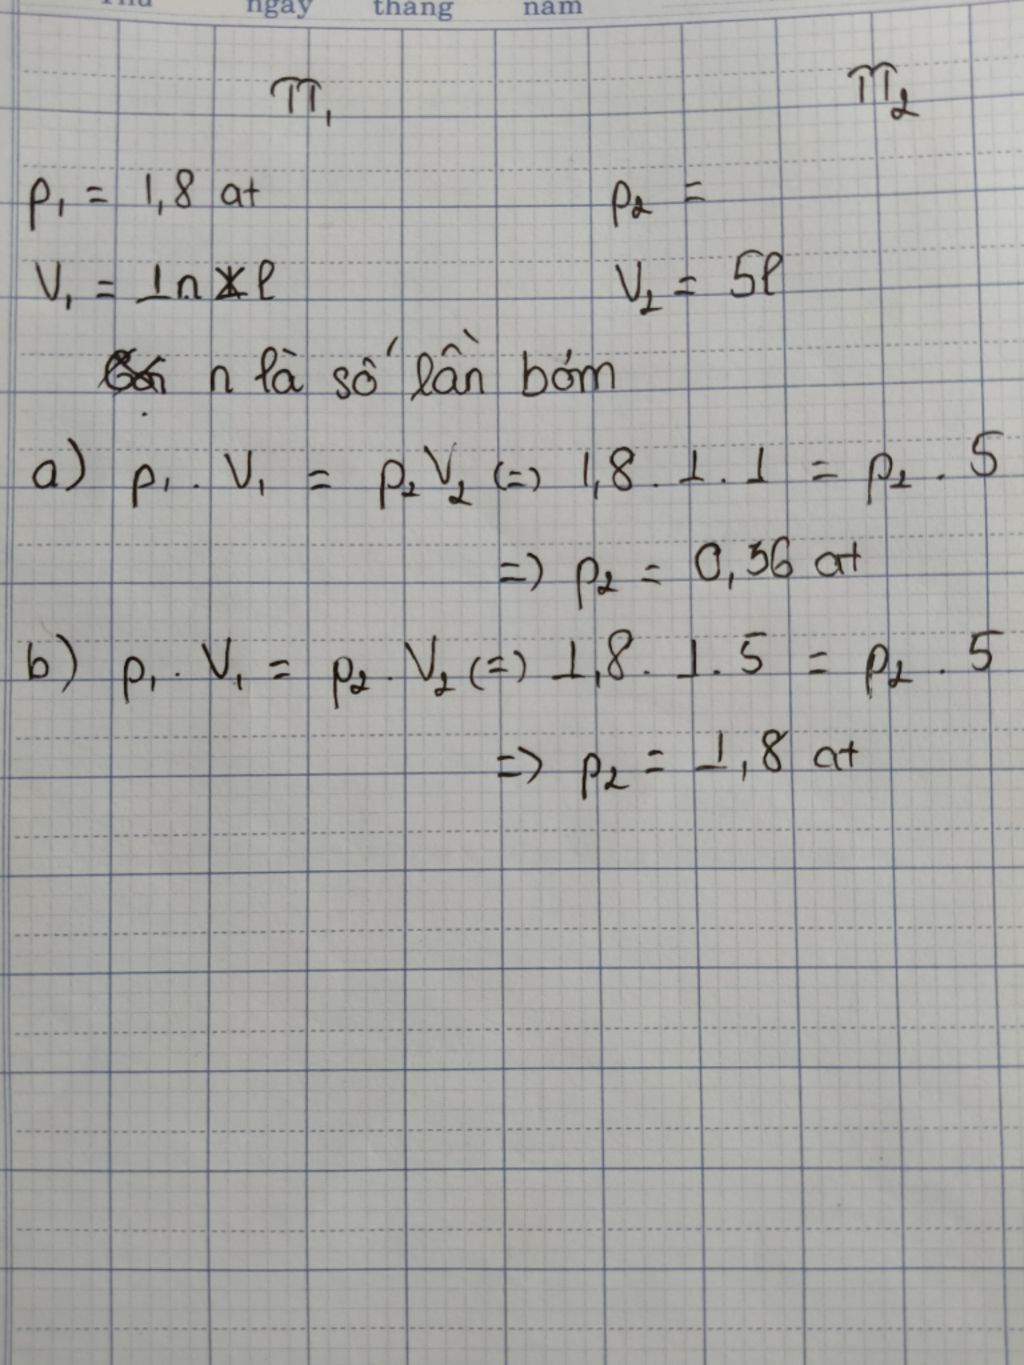 ngày tháng năm
TT₁ TT₂
p₁ = 1,8 at p₂ =
V₁ = 1n l V₂ = 5l
n là số lần bơm
a) p₁ . V₁ = p₂V₂ (=) 1,8 . 1 . 1 = p₂ . 5
=) p₂ = 0,36 at
b) p₁ . V₁ = p₂ . V₂ (=) 1,8 . 1 . 5 = p₂ . 5
=) p₂ = 1,8 at